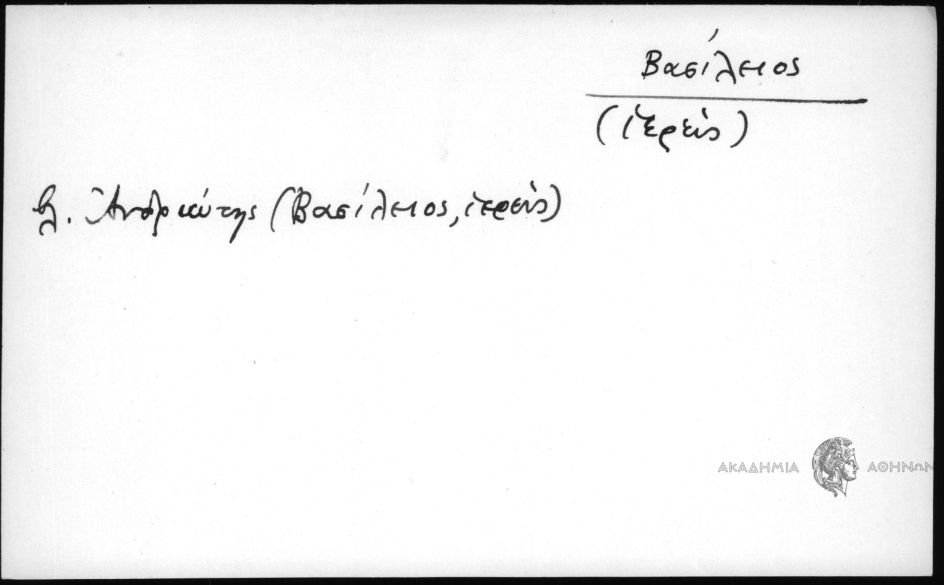 Βασίλειος
(ἱερεὺς)
βλ. Ἀνδριώτης (Βασίλειος, ἱερεὺς)
ΑΚΑΔΗΜΙΑ ΑΘΗΝΩΝ